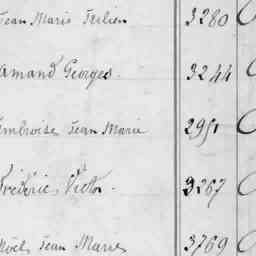 Jean Marie 3280
Armand Georges. 3244
Ambroise Jean Marie 2951
Frédéric Victor. 3267
Noël Jean Marie 3769